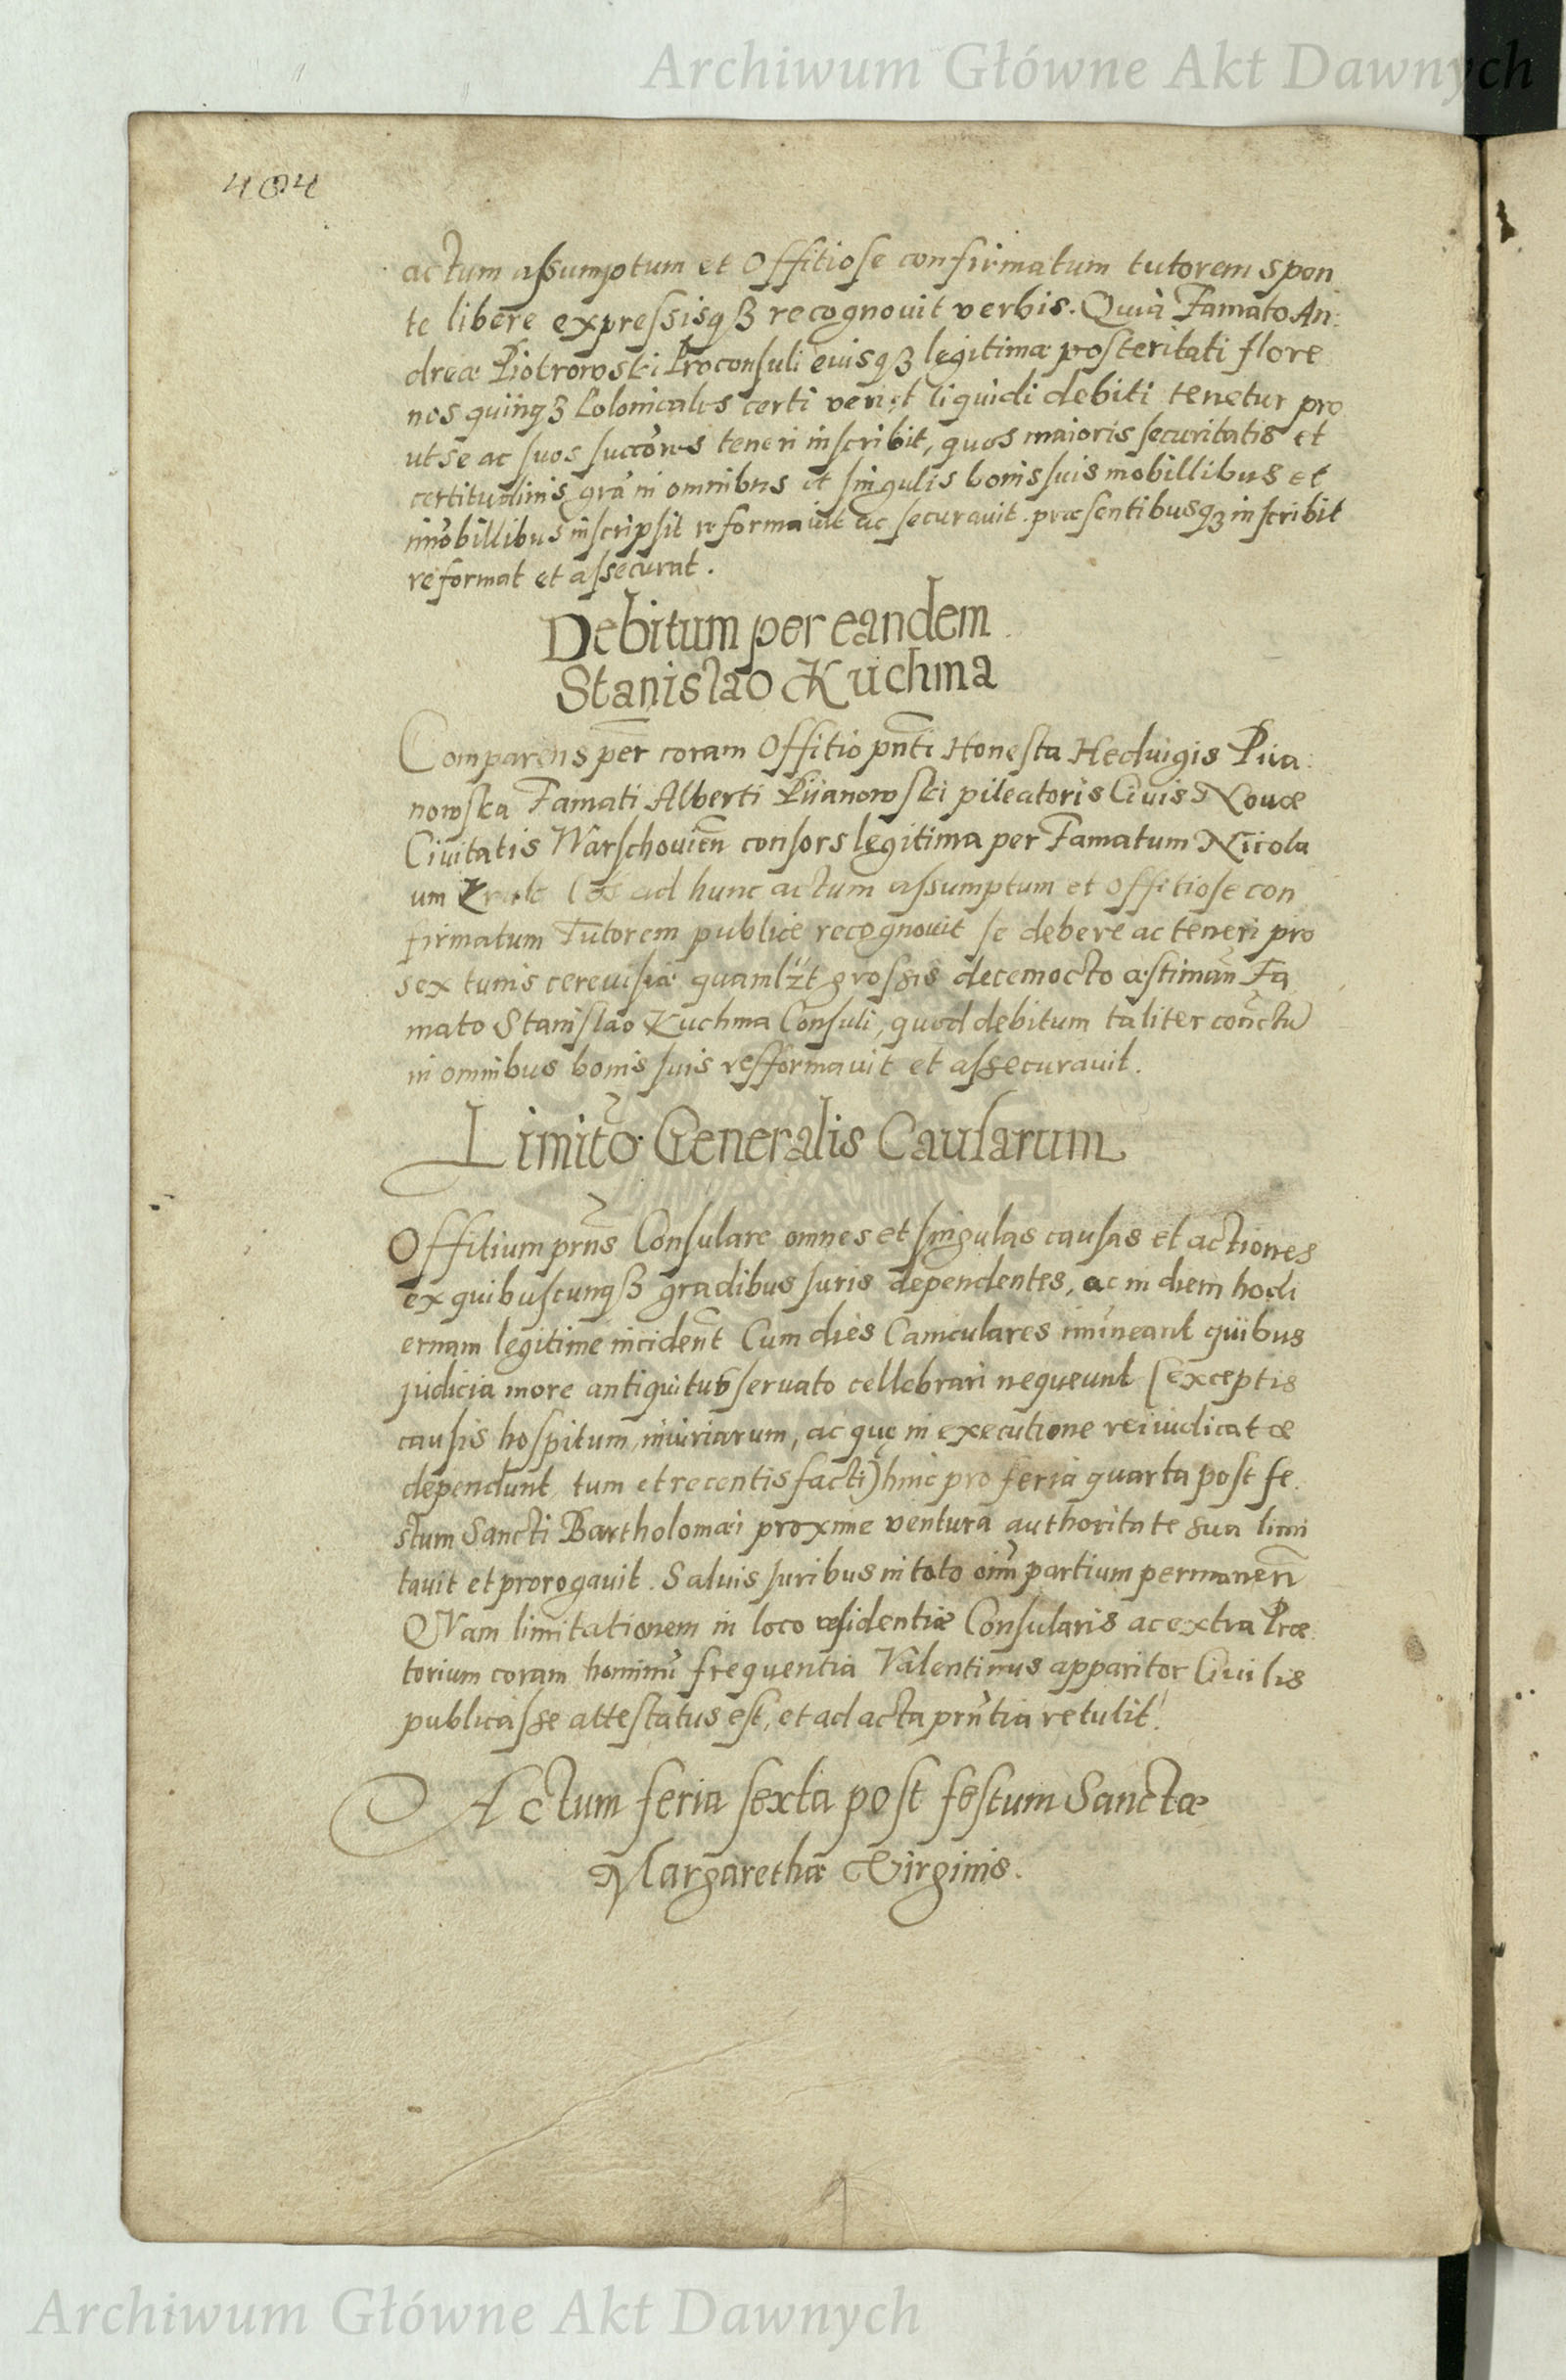 Archiwum Główne Akt Dawnych
404
actum assumptum et Offitiose confirmatum tutorem spon
te libere expressisqȝ recognouit verbis. Quia Famato An:
dreæ Piotrowski Proconsuli eiusqȝ legitimæ posteritati flore
nos quinqȝ Polonicales certi veri et liquidi debiti tenetur pro
ut se ac suos succōres teneri inscribit, quos maioris securitatis et
certitudinis grā in omnibus et singulis bonis suis mobillibus et
im̄obillibus inscripsit reformauit ac securauit. præsentibusqȝ inscribit
reformat et assecurat.
Debitum per eandem
Stanislao Kuchma
Comparens per coram Offitio pn̄ti Honesta Heduigis Piia
nowska Famati Alberti Piianowski pileatoris Ciuis Nouæ
Ciuitatis Warschouien̄ consors legitima per Famatum Nicola
um ad hunc actum assumptum et offitiose con
firmatum Tutorem publice recognouit se debere ac teneri pro
sex tunis cereuisiæ quamlzt grossis decemocto æstiman̄ Fa
mato Stanislao Kuchma Consuli, quod debitum taliter con̄ctū
in omnibus bonis suis refformauit et assecurauit.
Limitō Generalis Causarum
Offitium prn̄s Consulare omnes et singulas causas et actiones
ex quibuscunqȝ gradibus Iuris dependentes, ac in diem hodi
ernam legitime inciden̄t Cum dies Caniculares im̄ineant quibus
judicia more antiquitus seruato cellebrari nequeunt (exceptis
causis hospitum, iniuriarum, ac quę in executione rei iudicatæ
dependunt, tum et recentis facti) hinc pro feria quarta post fe
stum Sancti Bartholomæi proxime ventura authoritate sua limi
tauit et prorogauit. Saluis Iuribus in toto oīm partium permanen̄
QVam limitationem in loco residentiæ Consularis ac extra Præ
torium coram hominū frequentia Valentinus apparitor Ciuilis
publicasse attestatus est, et ad acta prn̄tia retulit.
Actum feria sexta post festum Sanctæ
Margarethæ Virginis.
Archiwum Główne Akt Dawnych